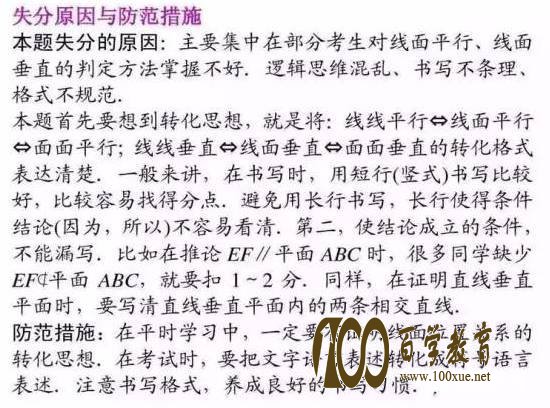 失分原因与防范措施
本题失分的原因：主要集中在部分考生对线面平行、线面
垂直的判定方法掌握不好．逻辑思维混乱、书写不条理、
格式不规范．
本题首先要想到转化思想，就是将：线线平行⇔线面平行
⇔面面平行；线线垂直⇔线面垂直⇔面面垂直的转化格式
表达清楚．一般来讲，在书写时，用短行(竖式)书写比较
好，比较容易找得分点．避免用长行书写，长行使得条件
结论(因为，所以)不容易看清．第二，使结论成立的条件，
不能漏写．比如在推论 EF∥平面 ABC 时，很多同学缺少
EF⊄平面 ABC，就要扣 1～2 分．同样，在证明直线垂直
平面时，要写清直线垂直平面内的两条相交直线．
防范措施：在平时学习中，一定要 线面 系的
转化思想．在考试时，要把文字 表述转化成 语言
表述．注意书写格式，养成良好的书写习惯．
100百学教育
www.100xue.net